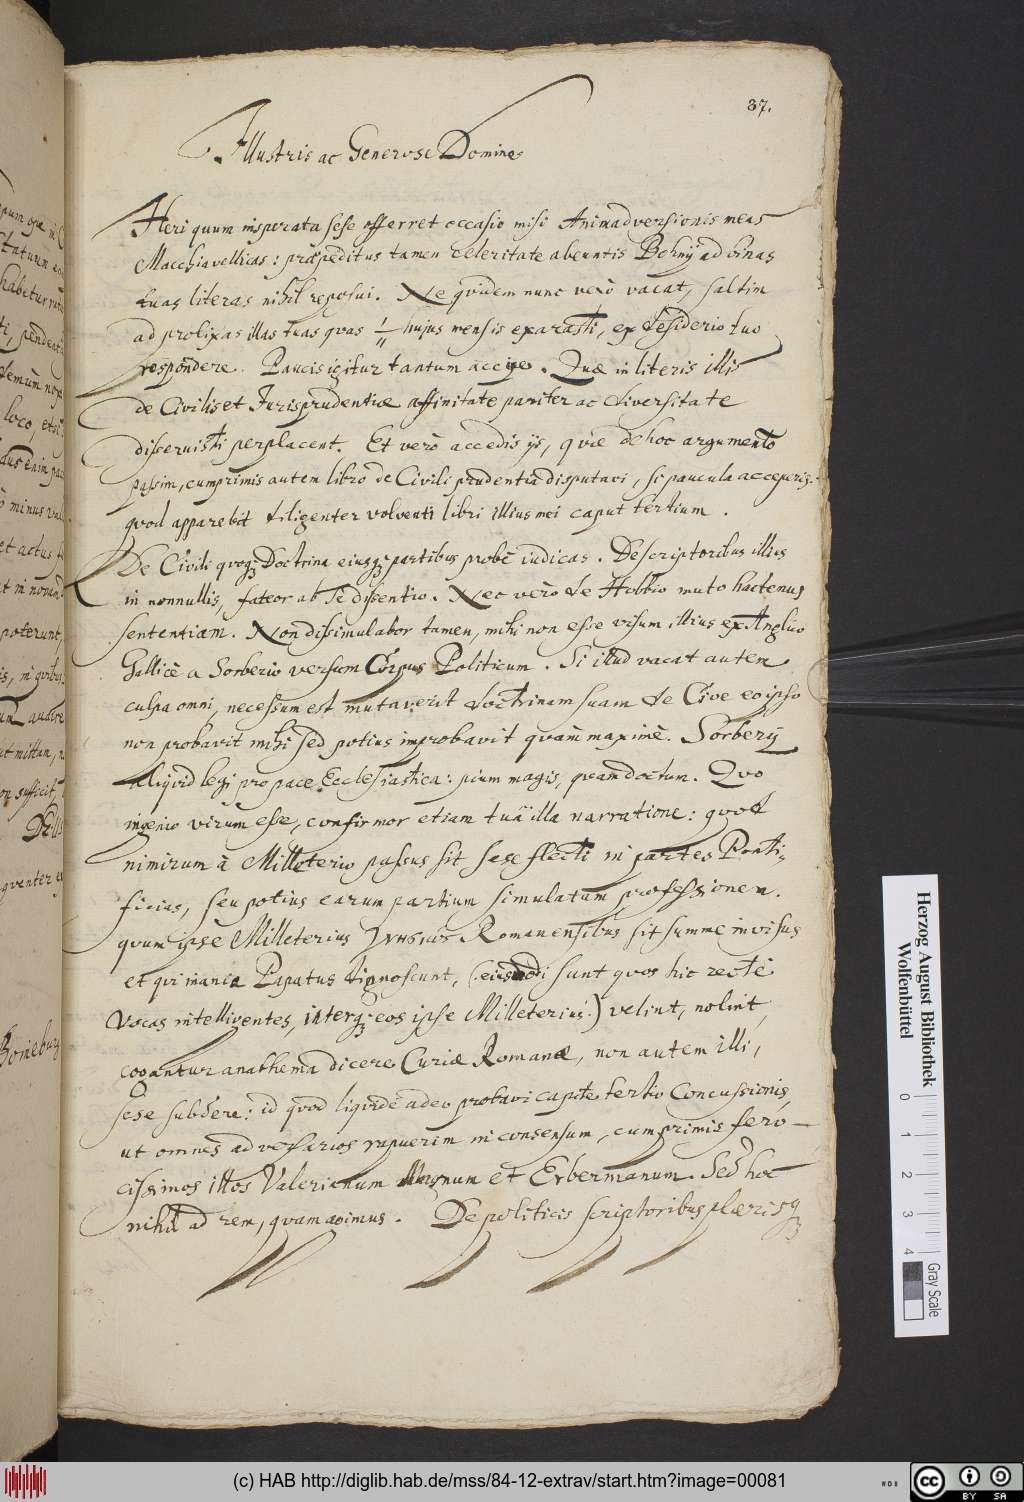 37.
Illustris ac Generose Domine
Heri quum insperata sese offerret occasio misi Animadversiones meas
Macchiavellicas: præpeditus tamen celeritate abeuntis Bohnij ad binas
tuas literas nihil reposui. Ne quidem nunc verò vacat, saltim
ad prolixas illas tuas quas hujus mensis exarasti, ex desiderio tuo
respondere. Paucis igitur tantum accipe. Quæ in literis illis
de Civilis et Jurisprudentiæ affinitate pariter ac diversitate
disseruisti perplacent. Et verò accedis ijs, quæ de hoc argumento
passim, cumprimis autem libro de Civili prudentia disputavi, si paucula acceperis:
quod apparebit diligenter volventi libri illius mei caput tertium.
De Civili quoq; Doctrina eiusq; partibus probè iudicas. De scriptoribus illius
in nonnullis, fateor ab Te dissentio. Nec verò de Hobbio muto hactenus
sententiam. Non dissimulabor tamen, mihi non esse visum illius ex Anglico
Gallicè a Sorberio versum Corpus Politicum. Si illud vacat autem
culpa omni, necessum est mutaverit doctrinam suam de Cive eo ipso
non probavit mihi sed potius improbavit quàm maximè. Sorberij
aliquid legi pro pace Ecclesiastica: pium magis, quam doctum. Quo
ingenio virum esse, confirmor etiam tuâ illa narratione: quod
nimirum à Milleterio passus sit sese flecti in partes Ponti=
ficias, seu potius earum partium simulatam professionem.
quum ipse Milleterius Romanensibus sit summe invisus
et qui mania Papatus dignoscunt, (eiusmodi sunt quos hic rectè
vocas intelligentes, interq; eos ipse Milleterius) velint, nolint,
cogantur anathema dicere Curiæ Romanæ, non autem illi,
sese subdere: id quod liquidè adeo probavi capite tertio Concussionis,
ut omnes adversarios rapuerim in consensum, cumprimis fero-
cissimos illos Valerianum Magnum et Erbermanum. Sed hoc
nihil ad rem, quam agimus. De politicis scriptoribus plærisq;
Boineburg
Herzog August Bibliothek
Wolfenbüttel
0 1 2 3 4
Gray Scale
(c) HAB http://diglib.hab.de/mss/84-12-extrav/start.htm?image=00081
cc BY SA